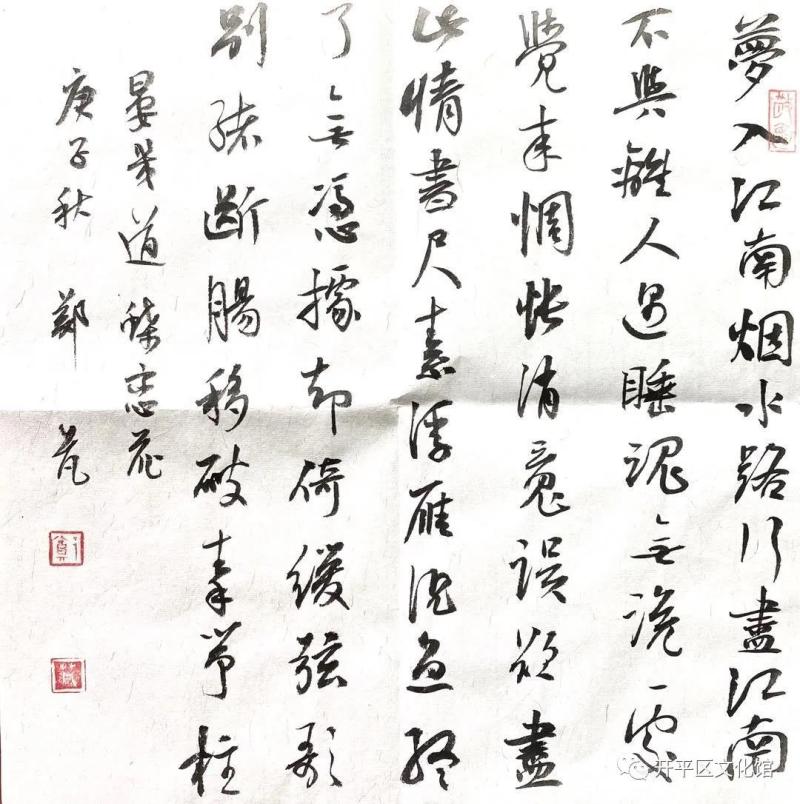 夢入江南烟水路行盡江南
不與離人遇睡魂無說處
覺来惆悵消魂误欲盡
此情書尺素浮雁沉魚終
了無憑據却倚緩弦歌
别緒斷腸移破秦筝柱
晏幾道 蝶恋花
庚子秋 鄭
开平区文化馆